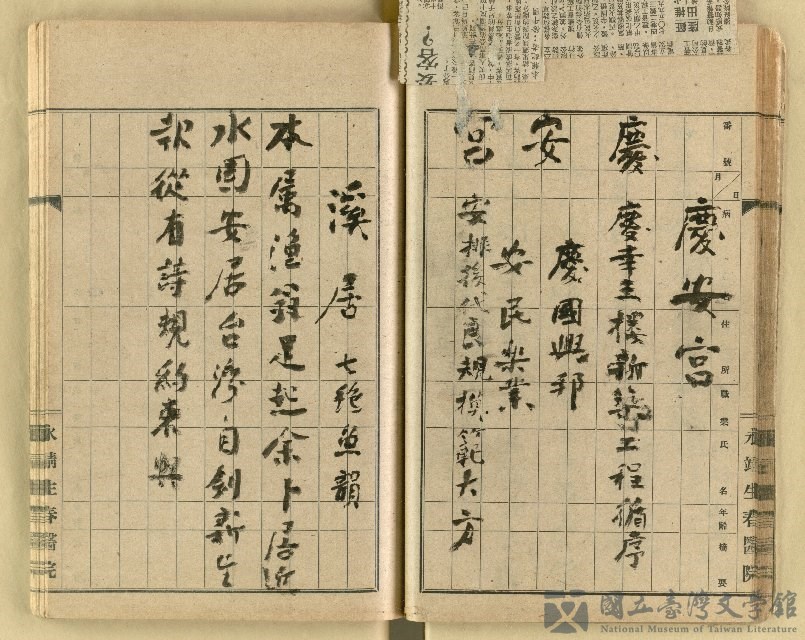 永靖生春醫院
番號 月 日 病 住所 職業 氏名 年齡 摘要
慶安宮
慶 慶幸主樓新築工程循序
慶國興邦
安
安民楽業
宮 安排後代良規模範大方
溪居 七絕魚韻
本属漁翁足慰余卜居近
水固安居台灣自創新生
款從有詩規約束與
永靖生春醫院
安客？
國立臺灣文學館
National Museum of Taiwan Literature